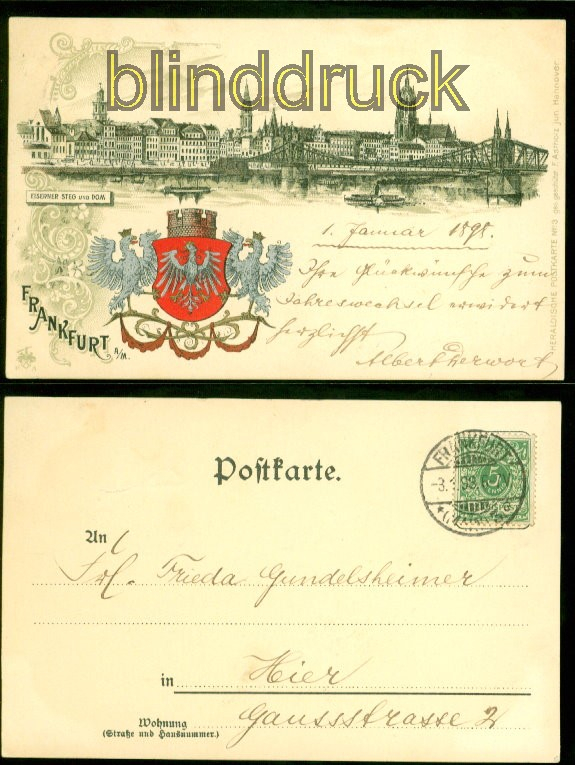 blinddruck
EISERNER STEG UND DOM
1. Januar 1898.
Ihre Glückwünsche zum
Jahreswechsel erwidert
herzlichst
Albert Herwort
FRANKFURT A/M.
HERALDISCHE POSTKARTE No 3
Jun. Hannover
Postkarte.
FRANKFURT
-3.1.98
5
An
Frl. Frieda Gundelsheimer
in Hier
Wohnung
(Straße und Hausnummer.)
Gaussstrasse 2